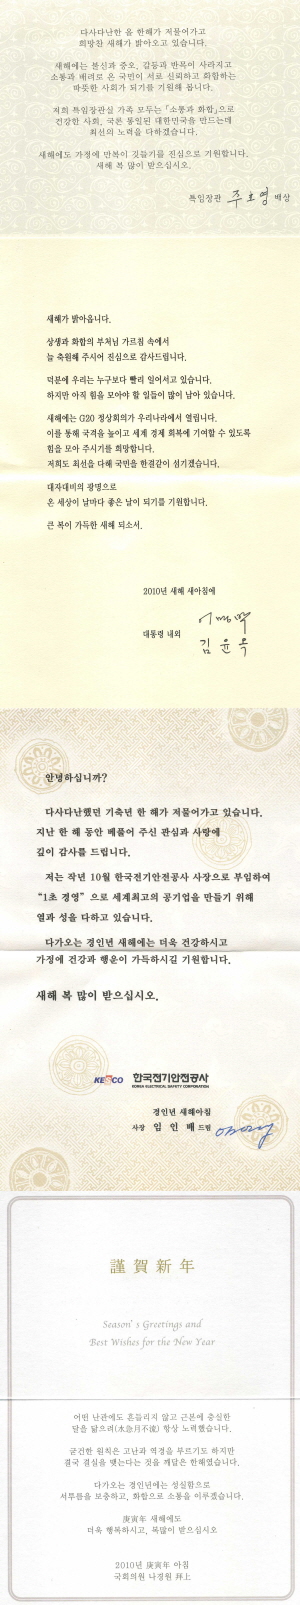 다사다난한 올 한해가 저물어가고
희망찬 새해가 밝아오고 있습니다.
새해에는 불신과 증오, 갈등과 반목이 사라지고
소통과 배려로 온 국민이 서로 신뢰하고 화합하는
따뜻한 사회가 되기를 기원해 봅니다.
저희 특임장관실 가족 모두는 「소통과 화합」으로
건강한 사회, 국론 통일된 대한민국을 만드는데
최선의 노력을 다하겠습니다.
새해에도 가정에 만복이 깃들기를 진심으로 기원합니다.
새해 복 많이 받으십시오.
특임장관 주호영 배상
새해가 밝아옵니다.
상생과 화합의 부처님 가르침 속에서
늘 축원해 주시어 진심으로 감사드립니다.
덕분에 우리는 누구보다 빨리 일어서고 있습니다.
하지만 아직 힘을 모아야 할 일들이 많이 남아 있습니다.
새해에는 G20 정상회의가 우리나라에서 열립니다.
이를 통해 국격을 높이고 세계 경제 회복에 기여할 수 있도록
힘을 모아 주시기를 희망합니다.
저희도 최선을 다해 국민을 한결같이 섬기겠습니다.
대자대비의 광명으로
온 세상이 날마다 좋은 날이 되기를 기원합니다.
큰 복이 가득한 새해 되소서.
2010년 새해 새아침에
이명박
대통령 내외
김윤옥
안녕하십니까?
다사다난했던 기축년 한 해가 저물어가고 있습니다.
지난 한 해 동안 베풀어 주신 관심과 사랑에
깊이 감사를 드립니다.
저는 작년 10월 한국전기안전공사 사장으로 부임하여
“1초 경영”으로 세계최고의 공기업을 만들기 위해
열과 성을 다하고 있습니다.
다가오는 경인년 새해에는 더욱 건강하시고
가정에 건강과 행운이 가득하시길 기원합니다.
새해 복 많이 받으십시오.
KESCO 한국전기안전공사
KOREA ELECTRICAL SAFETY CORPORATION
경인년 새해아침
사장 임인배 드림
謹賀新年
Season's Greetings and
Best Wishes for the New Year
어떤 난관에도 흔들리지 않고 근본에 충실한
달을 닮으려(水急月不流) 항상 노력했습니다.
굳건한 원칙은 고난과 역경을 부르기도 하지만
결국 결실을 맺는다는 것을 깨달은 한해였습니다.
다가오는 경인년에는 성실함으로
서투름을 보충하고, 화합으로 소통을 이루겠습니다.
庚寅年 새해에도
더욱 행복하시고, 복많이 받으십시오
2010년 庚寅年 아침
국회의원 나경원 拜上